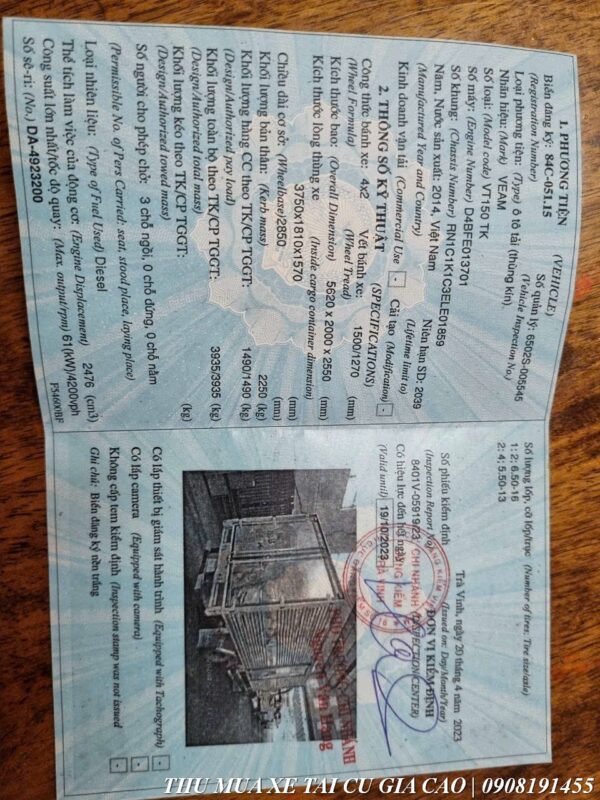 1. PHƯƠNG TIỆN (VEHICLE)
Biển đăng ký: 84C-051.15 Số quản lý: 6502S-005545
(Registration Number) (Vehicle Inspection No.)
Loại phương tiện: (Type) ô tô tải (thùng kín).
Nhãn hiệu: (Mark) VEAM
Số loại: (Model code) VT150 TK
Số máy: (Engine Number) D4BFE013701
Số khung: (Chassis Number) RN1C1K1C3ELE01859
Năm, Nước sản xuất: 2014, Việt Nam Niên hạn SD: 2039
(Manufactured Year and Country) (Lifetime limit to)
Kinh doanh vận tải (Commercial Use) - Cải tạo (Modification) -
2. THÔNG SỐ KỸ THUẬT (SPECIFICATIONS)
Công thức bánh xe: 4x2 Vết bánh xe: 1500/1270 (mm)
(Wheel Formula) (Wheel Tread)
Kích thước bao: (Overall Dimension) 5620 x 2000 x 2550 (mm)
Kích thước lòng thùng xe (Inside cargo container dimension)
3750x1810x1570 (mm)
Chiều dài cơ sở: (Wheelbase) 2850 (mm)
Khối lượng bản thân: (Kerb mass) 2250 (kg)
Khối lượng hàng CC theo TK/CP TGGT: 1490/1490 (kg)
(Design/Authorized pay load)
Khối lượng toàn bộ theo TK/CP TGGT: 3935/3935 (kg)
(Design/Authorized total mass)
Khối lượng kéo theo TK/CP TGGT: (kg)
(Design/Authorized towed mass)
Số người cho phép chở: 3 chỗ ngồi, 0 chỗ đứng, 0 chỗ nằm
(Permissible No. of Pers Carried: seat, stood place, laying place)
Loại nhiên liệu: (Type of Fuel Used) Diesel
Thể tích làm việc của động cơ: (Engine Displacement) 2476 (cm3)
Công suất lớn nhất/tốc độ quay: (Max. output/rpm) 61(kW)/4200vph
Số sê-ri: (No.) DA-4923200
Số lượng lốp, cỡ lốp/trục (Number of tires: Tire size/axle)
1: 2; 6.50-16
2: 4; 5.50-13
Trà Vinh, ngày 20 tháng 4 năm 2023
(Issued on: Day/Month/Year)
Số phiếu kiểm định ĐƠN VỊ KIỂM ĐỊNH
(Inspection Report No) (INSPECTION CENTER)
8401V-05919/23
CHI NHÁNH
Có hiệu lực đến hết ngày
(Valid until) 19/10/2023
Có lắp thiết bị giám sát hành trình (Equipped with Tachograph) -
Có lắp camera (Equipped with camera) -
Không cấp tem kiểm định (Inspection stamp was not issued -
Ghi chú: Biển đăng ký nền trắng
THU MUA XE TAI CU GIA CAO | 0908191455